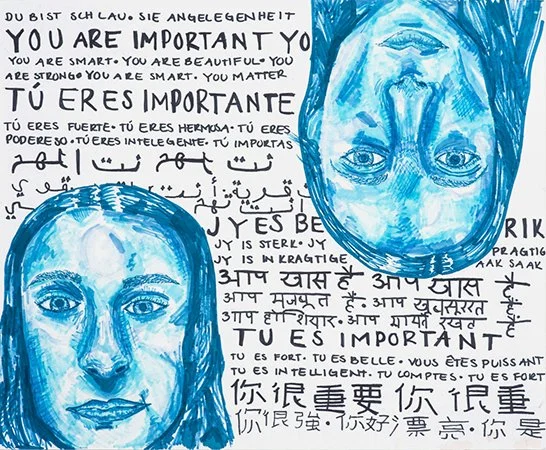 DU BIST SCHLAU. SIE ANGELEGENHEIT
YOU ARE IMPORTANT YO
YOU ARE SMART • YOU ARE BEAUTIFUL • YOU
ARE STRONG • YOU ARE SMART. YOU MATTER
TÚ ERES IMPORTANTE
TÚ ERES FUERTE • TÚ ERES HERMOSA • TÚ ERES
PODERESO • TÚ ERES INTELEGENTE • TÚ IMPORTAS
JY ES BE RIK
JY IS STERK • JY PRAGTIG
JY IS IN KRAGTIGE AAK SAAK
आप खास है आप खास
आप मजबूत है • आप खूबसूरत
आप होशियार • आप मायने रखत
TU ES IMPORTANT
TU ES FORT • TU ES BELLE • VOUS ÊTES PUISSANT
TU ES INTELLIGENT. TU COMPTES • TU ES FORT
你很重要 你很重
你很強 • 你好漂亮 • 你是